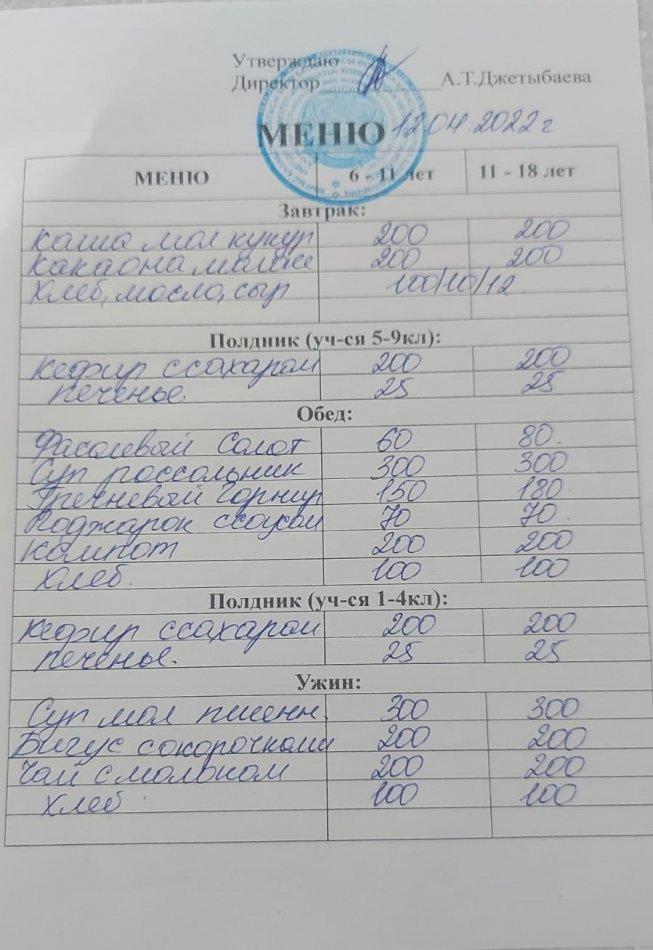 Утверждаю
Директор А.Т.Джетыбаева
МЕНЮ 12.04.2022г
МЕНЮ 6 - 11 лет 11 - 18 лет
Завтрак:
Каша мол кукур 200 200
Какао на молоке 200 200
Хлеб, масло, сыр 100/10/12
Полдник (уч-ся 5-9кл):
Кефир с сахаром 200 200
печенье. 25 25
Обед:
Фасолевый Салат 60 80.
Суп россольник 300 300
Гречневый гарнир 150 180
Поджарок с соусом 70 70
Компот 200 200
Хлеб. 100 100
Полдник (уч-ся 1-4кл):
Кефир с сахаром 200 200
печенье. 25 25
Ужин:
Суп мол пшенн. 300 300
Бигус с окорочками 200 200
Чай с молоком 200 200
Хлеб 100 100